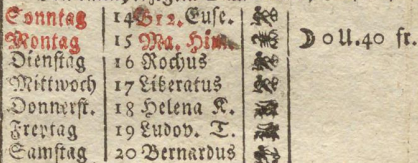 Sonntag 14 G 12. Euse.
Montag 15 Ma. Him ☽ 0 U. 40 fr.
Dienstag 16 Rochus
Mittwoch 17 Liberatus
Donnerst. 18 Helena K.
Freytag 19 Ludov. T.
Samstag 20 Bernardus